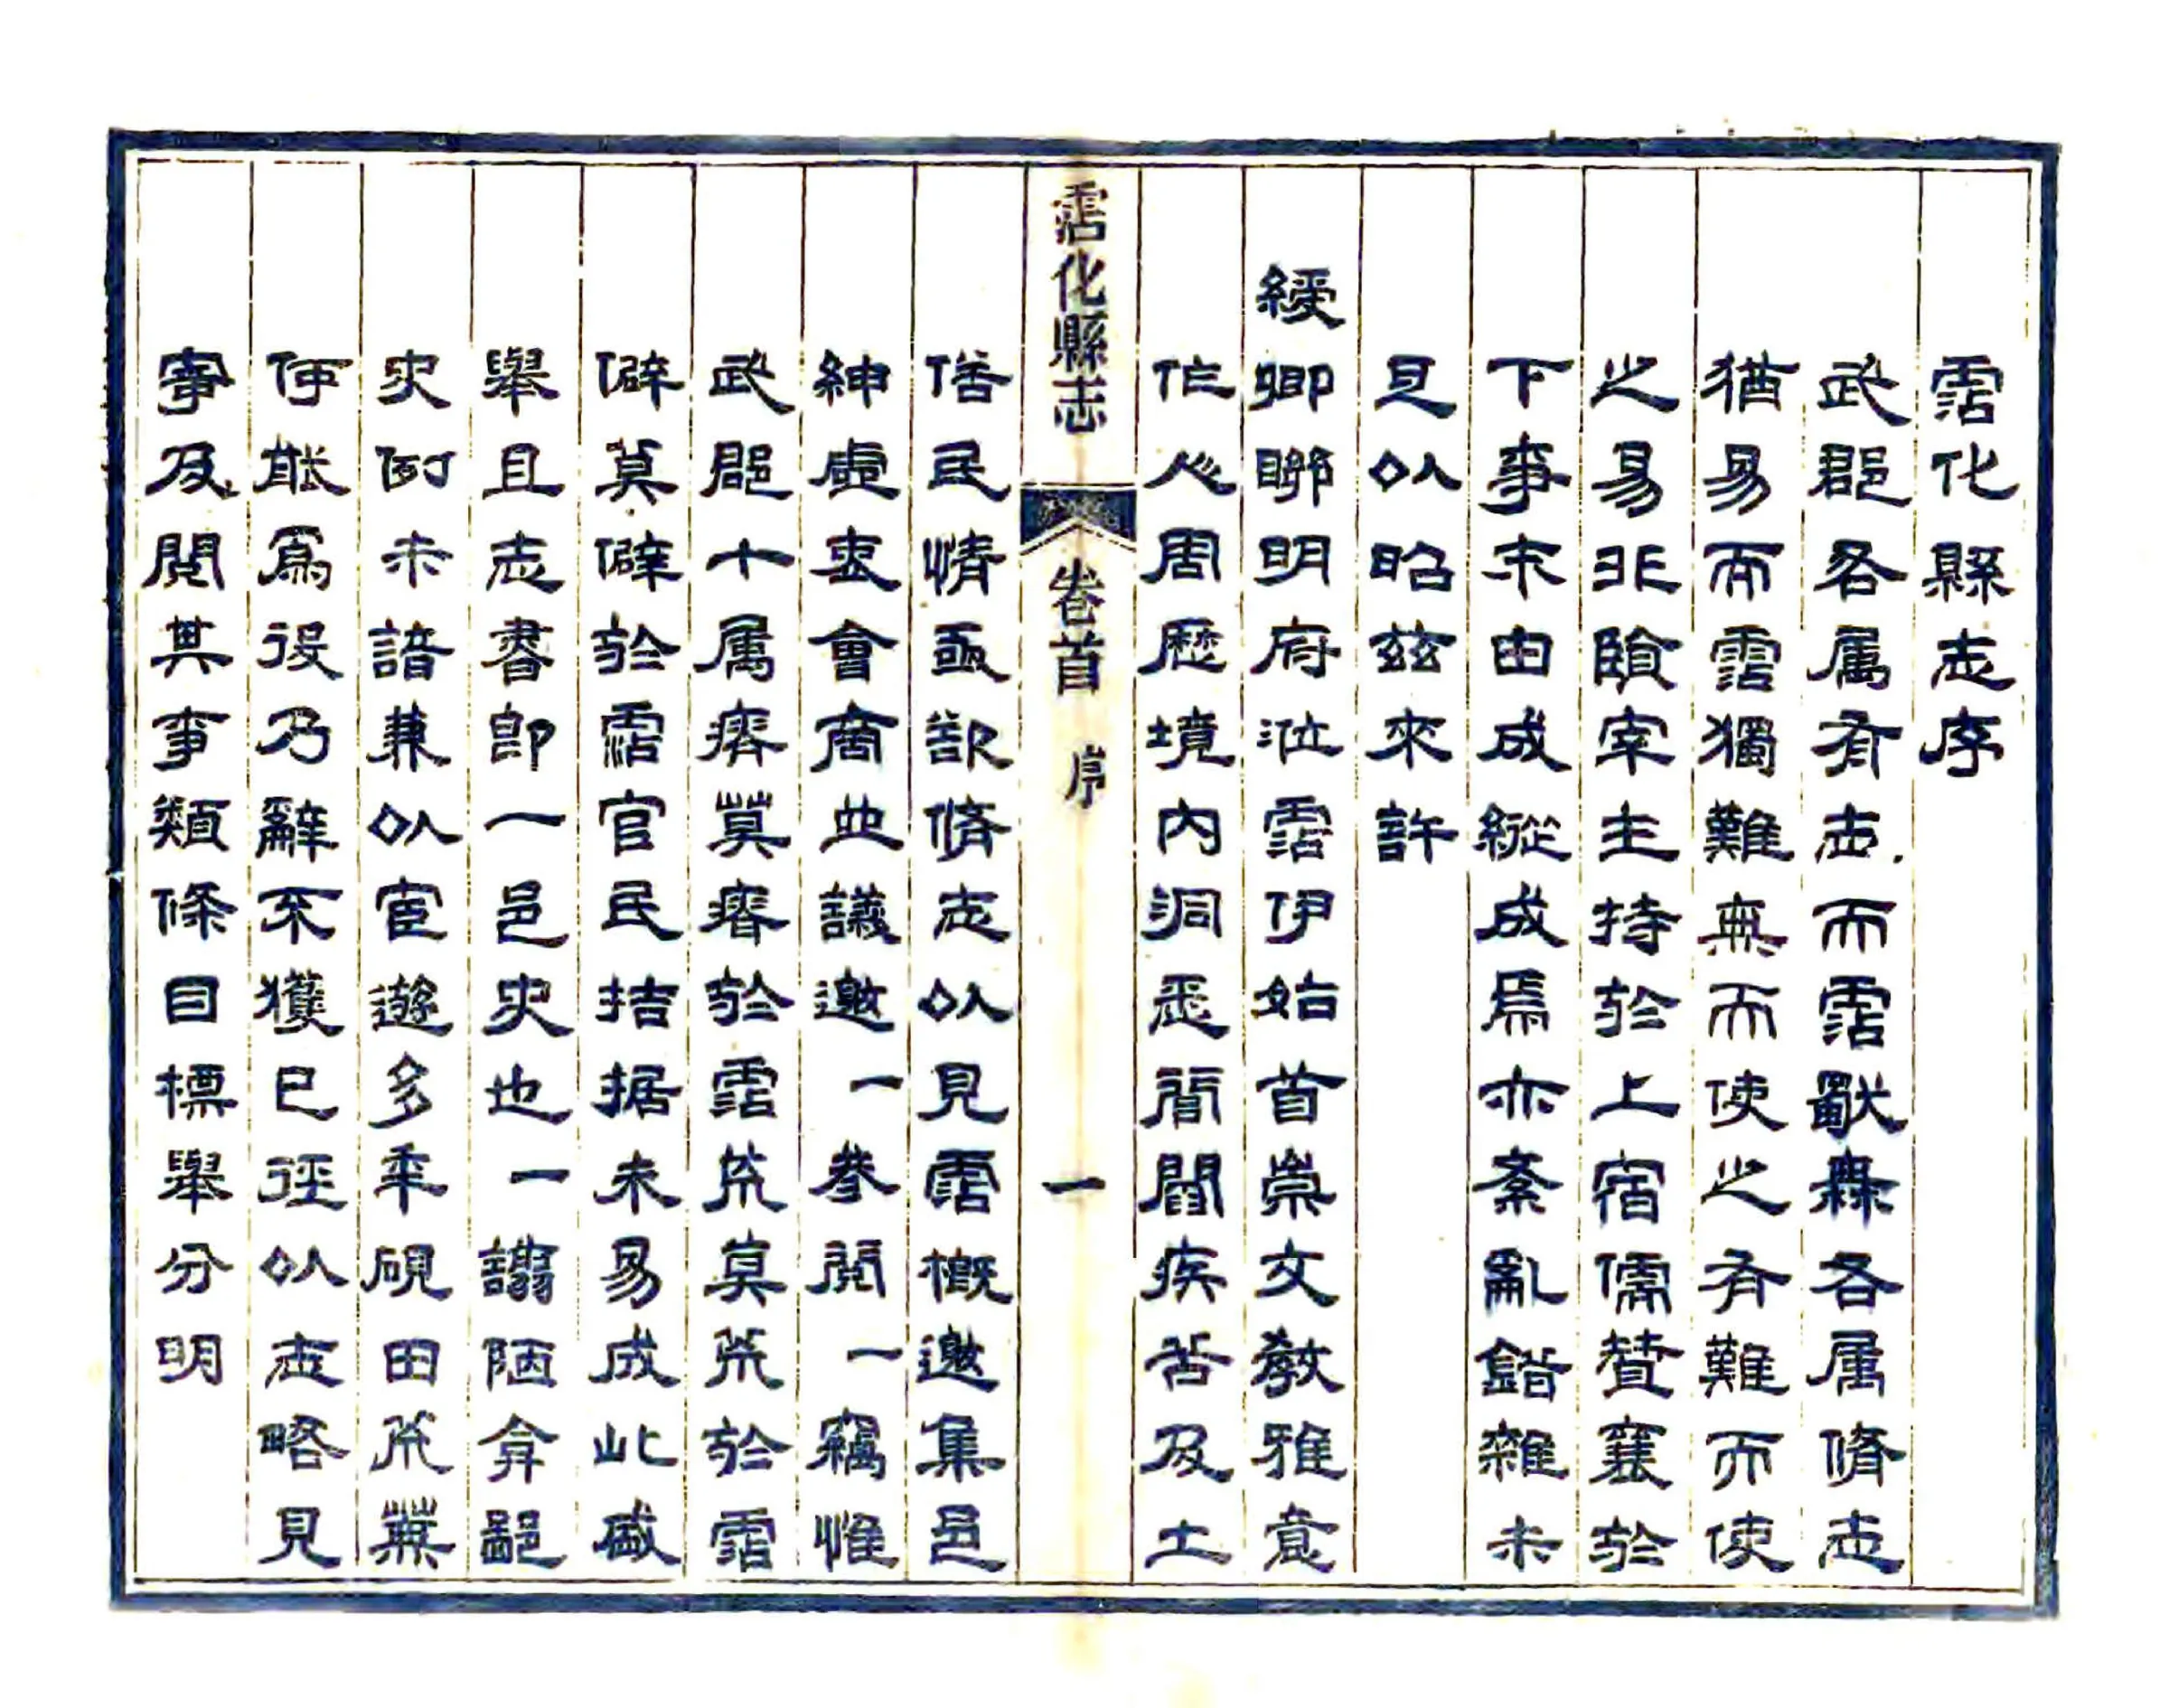 霑化縣志序
武郡各属有志而霑獸無各属脩志
猶易而霑獨難無而使之有難而使
之易非賴宰主持於上宿儒賛襄於
下事末由成縱成焉亦紊亂錯雜未
足以昭兹來許
綬卿聯明府涖霑伊始首崇文教雅意
作人周歷境内洞悉閭閻疾苦及土
俗民情亟欲脩志以見霑概邀集邑
紳虛衷會商並議邀一參閱一竊惟
武郡十属瘠莫瘠於霑荒莫荒於霑
僻莫僻於霑官民拮据未易成此盛
舉且志書即一邑史也一譾陋弇鄙
史例未諳兼以宦遊多年硯田荒蕪
何能爲役乃辭不獲已徑以志略見
寄及閱其事類條目標舉分明
霑化縣志
卷首 序
一